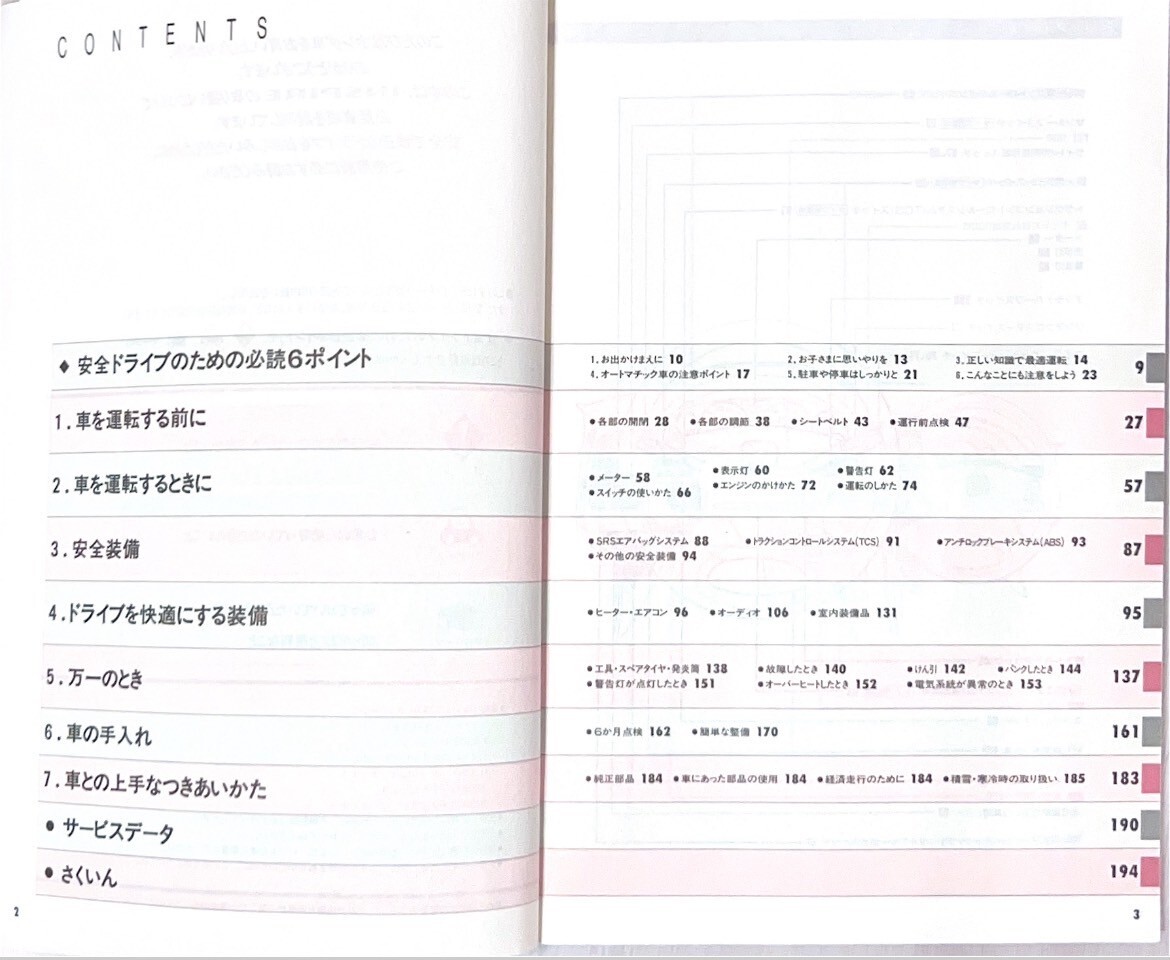 CONTENTS
◆ 安全ドライブのための必読6ポイント
1. お出かけまえに 10 2. お子さまに思いやりを 13 3. 正しい知識で最適運転 14
4. オートマチック車の注意ポイント 17 5. 駐車や停車はしっかりと 21 6. こんなことにも注意をしよう 23
9
1. 車を運転する前に
●各部の開閉 28 ●各部の調節 38 ●シートベルト 43 ●運行前点検 47
27
2. 車を運転するときに
●メーター 58 ●表示灯 60 ●警告灯 62
●スイッチの使いかた 66 ●エンジンのかけかた 72 ●運転のしかた 74
57
3. 安全装備
●SRSエアバッグシステム 88 ●トラクションコントロールシステム(TCS) 91 ●アンチロックブレーキシステム(ABS) 93
●その他の安全装備 94
87
4. ドライブを快適にする装備
●ヒーター・エアコン 96 ●オーディオ 106 ●室内装備品 131
95
5. 万一のとき
●工具・スペアタイヤ・発炎筒 138 ●故障したとき 140 ●けん引 142 ●パンクしたとき 144
●警告灯が点灯したとき 151 ●オーバーヒートしたとき 152 ●電気系統が異常のとき 153
137
6. 車の手入れ
●6か月点検 162 ●簡単な整備 170
161
7. 車との上手なつきあいかた
●純正部品 184 ●車にあった部品の使用 184 ●経済走行のために 184 ●積雪・寒冷時の取り扱い 185
183
● サービスデータ
190
● さくいん
194
2
3